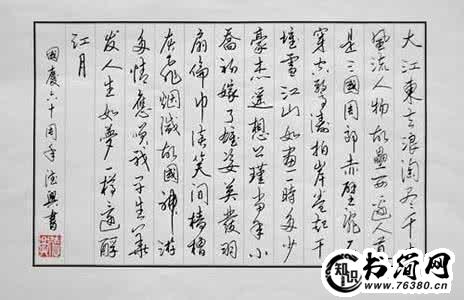 大江東去浪淘尽千古
風流人物故壘西邊人道
是三國周郎赤壁亂石
穿空驚濤拍岸卷起千
堆雪江山如畫一時多少
豪杰遥想公瑾當年小
喬初嫁了雄姿英發羽
扇綸巾談笑間檣櫓
灰飛烟滅故國神游
多情應笑我早生華
发人生如夢一樽還酹
江月
國慶六十周年 德興書
知识
书简网
www.76380.cn